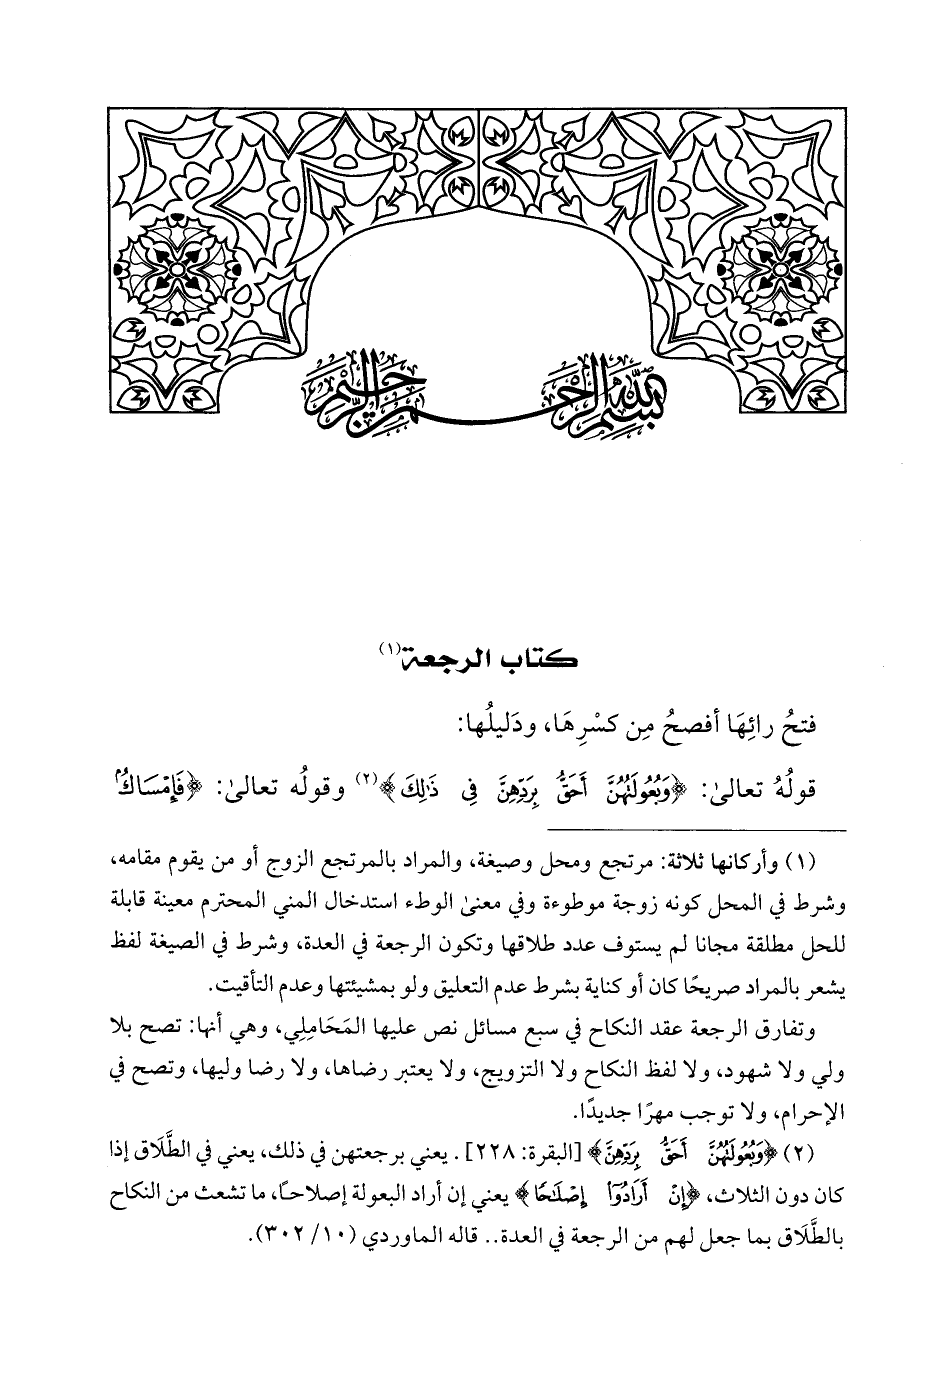 بسم الله الرحمن الرحيم
كتاب الرجعة(١)
فتحُ رائِهَا أفصحُ مِن كسْرِهَا، ودَليلُها:
قولُهُ تعالىٰ: ﴿وَبُعُولَتُهُنَّ أَحَقُّ بِرَدِّهِنَّ فِي ذَٰلِكَ﴾(٢) وقولُه تعالىٰ: ﴿فَإِمْسَاكٌۢ
(١) وأركانها ثلاثة: مرتجع ومحل وصيغة، والمراد بالمرتجع الزوج أو من يقوم مقامه،
وشرط في المحل كونه زوجة موطوءة وفي معنىٰ الوطء استدخال المني المحترم معينة قابلة
للحل مطلقة مجانا لم يستوف عدد طلاقها وتكون الرجعة في العدة، وشرط في الصيغة لفظ
يشعر بالمراد صريحًا كان أو كناية بشرط عدم التعليق ولو بمشيئتها وعدم التأقيت.
وتفارق الرجعة عقد النكاح في سبع مسائل نص عليها المَحَاملِي، وهي أنها: تصح بلا
ولي ولا شهود، ولا لفظ النكاح ولا التزويج، ولا يعتبر رضاها، ولا رضا وليها، وتصح في
الإحرام، ولا توجب مهرًا جديدًا.
(٢) ﴿وَبُعُولَتُهُنَّ أَحَقُّ بِرَدِّهِنَّ﴾ [البقرة: ٢٢٨]. يعني برجعتهن في ذلك، يعني في الطَّلَاق إذا
كان دون الثلاث، ﴿إِنْ أَرَادُوٓا۟ إِصْلَٰحًا﴾ يعني إن أراد البعولة إصلاحًا، ما تشعث من النكاح
بالطَّلَاق بما جعل لهم من الرجعة في العدة.. قاله الماوردي (١٠/ ٣٠٢).